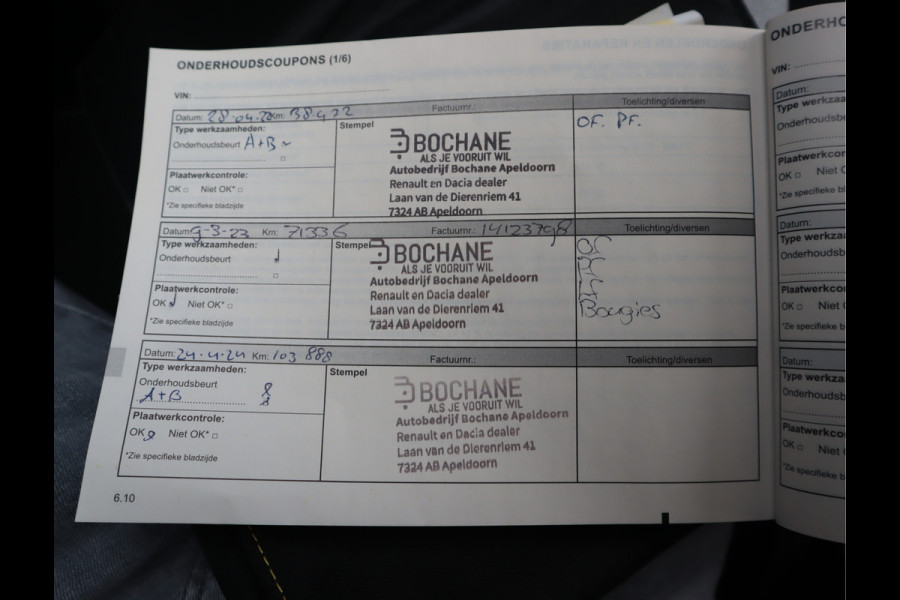 ONDERHOUDSCOUPONS (1/6)
VIN:
Datum: 28-04-22 Km: 38.422 Factuurnr.: Toelichting/diversen
Type werkzaamheden: Stempel OF. PF.
Onderhoudsbeurt A+B
BOCHANE
ALS JE VOORUIT WIL
Autobedrijf Bochane Apeldoorn
Renault en Dacia dealer
Laan van de Dierenriem 41
7324 AB Apeldoorn
Plaatwerkcontrole:
OK Niet OK*
*Zie specifieke bladzijde
Datum: 9-3-23 Km: 71336 Factuurnr.: 14123798 Toelichting/diversen
Type werkzaamheden: Stempel
Onderhoudsbeurt
BOCHANE
ALS JE VOORUIT WIL
Autobedrijf Bochane Apeldoorn
Renault en Dacia dealer
Laan van de Dierenriem 41
7324 AB Apeldoorn
Bougies
Plaatwerkcontrole:
OK Niet OK*
*Zie specifieke bladzijde
Datum: 24.4.24 Km: 103 888 Factuurnr.: Toelichting/diversen
Type werkzaamheden: Stempel
Onderhoudsbeurt
A+B
BOCHANE
ALS JE VOORUIT WIL
Autobedrijf Bochane Apeldoorn
Renault en Dacia dealer
Laan van de Dierenriem 41
7324 AB Apeldoorn
Plaatwerkcontrole:
OK Niet OK*
*Zie specifieke bladzijde
6.10
ONDERHO
VIN:
Datum:
Type werkza
Onderhoudsbe
Plaatwerkcor
OK Niet
*Zie specifieke b
Datum:
Type werkza
Onderhoudsb
Plaatwerkco
OK Niet
*Zie specifieke b
Datum:
Type werkza
Onderhoudsb
Plaatwerkco
OK Niet
*Zie specifieke b